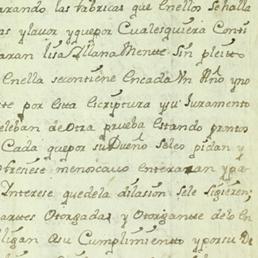 arando las fabricas que Enellos sehalla
as ylauor yquepor Cualesquiera Conti
aran lisa Yllana Mentte Sin pleitto
Enella secontiene Encada Vn Año yno
te por Esta Escriptura ysu Juramento
eleban de otra prueba Estando promtos
Cada quepor su Dueño Seles pidan y
ofreciese menoscauo enteraran ypa
Interese quedela dilasion sele siguieren;
partes Otorgadas y Otorgantte
ligan asu Cumplimientto yporsu De